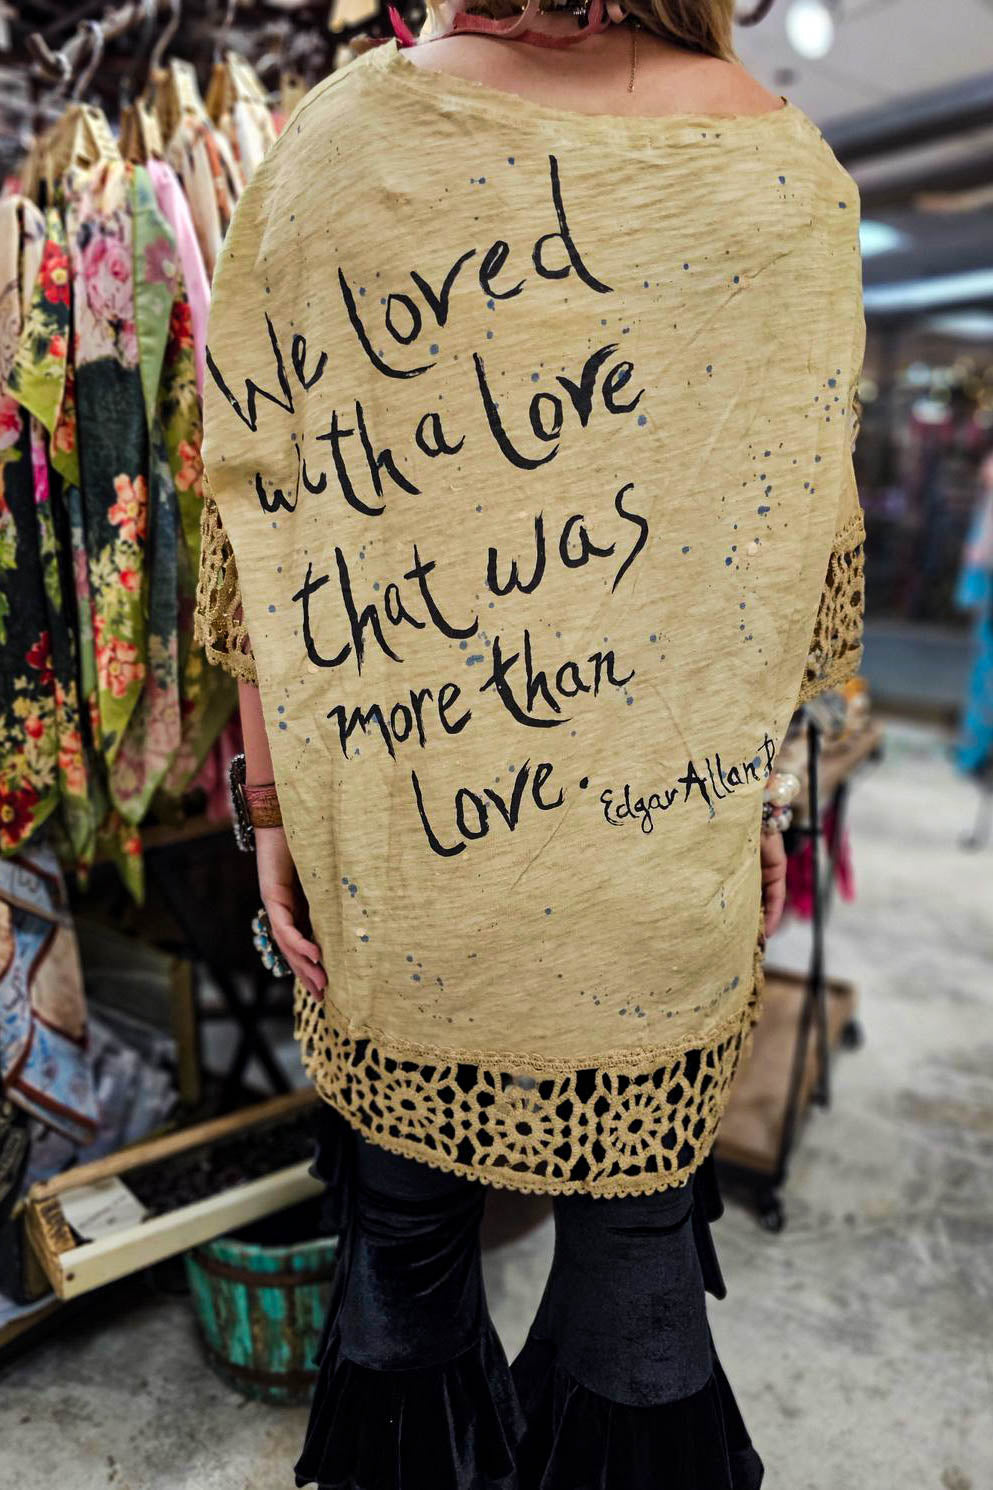 We loved
with a love
that was
more than
love.
Edgar Allan P